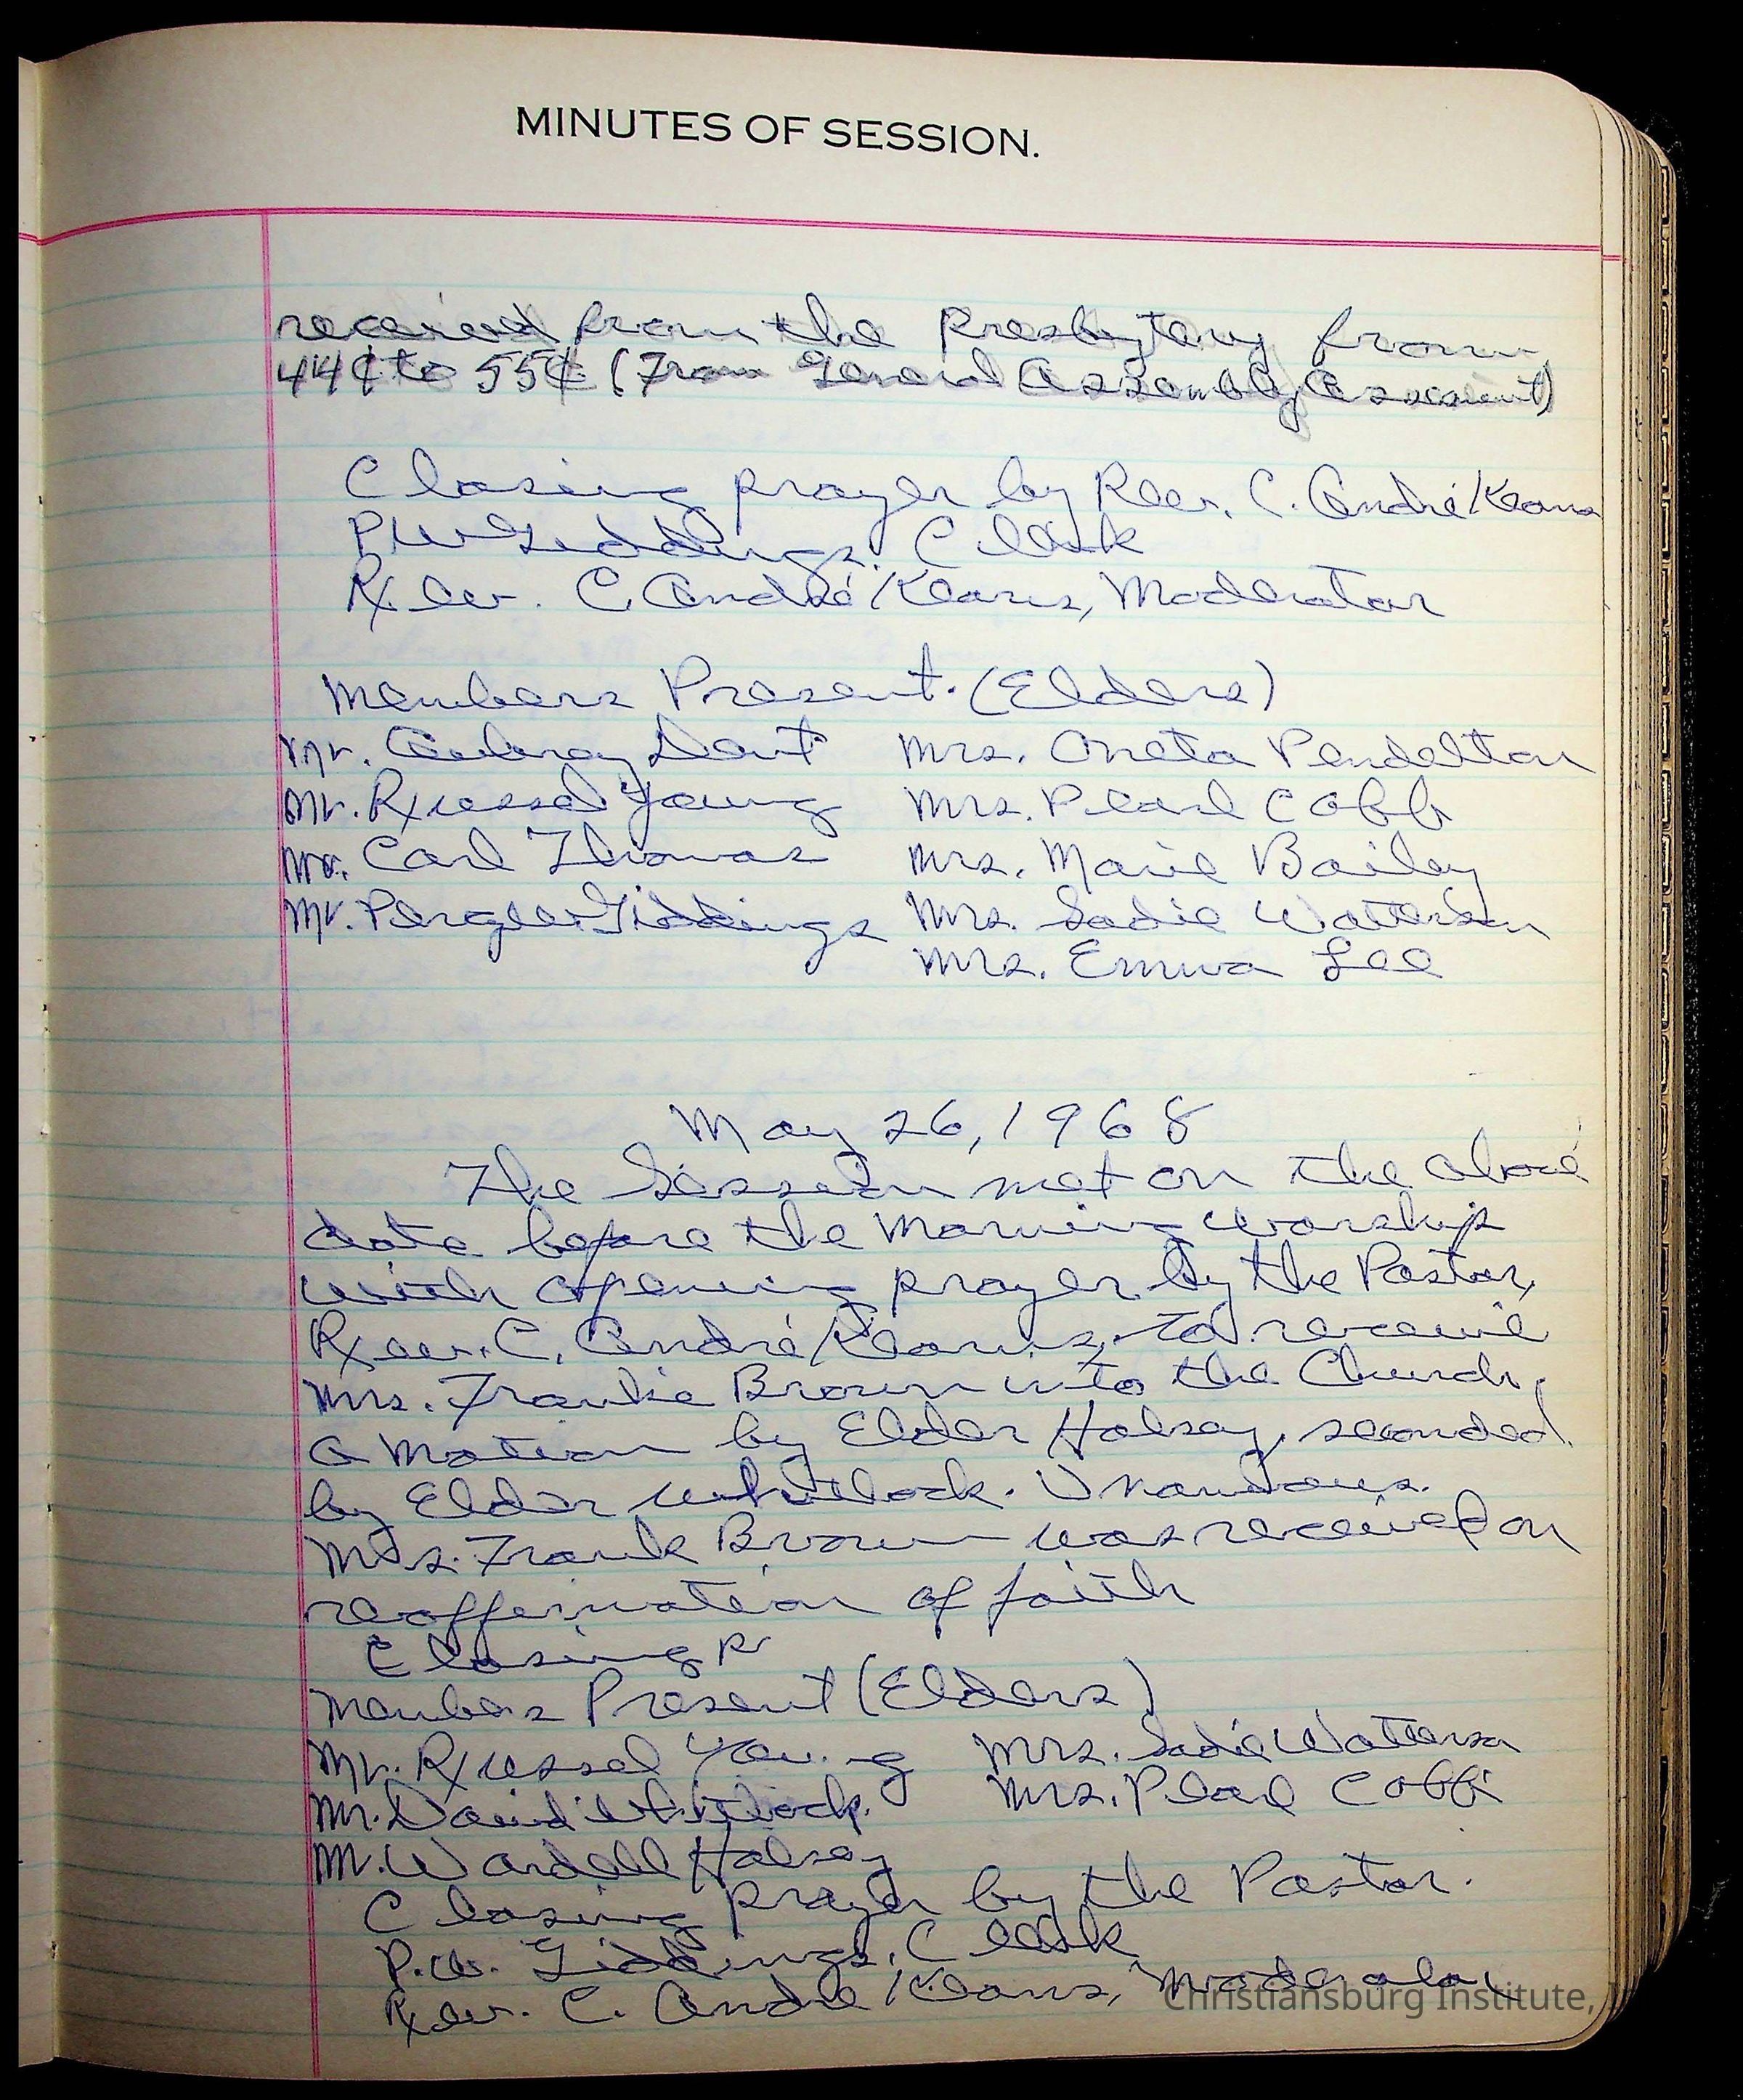 MINUTES OF SESSION.
received from the Presbytery from
44¢ to 55¢ (From General Assembly Assessment)
Closing prayer by Rev. C. André Kearns
P.W. Giddings, Clerk
Rev. C. André Kearns, Moderator
Members Present. (Elders)
Mr. Aubrey Dent Mrs. Oneta Pendelton
Mr. Russel Young Mrs. Pearl Cobb
Mr. Carl Thomas Mrs. Marie Bailey
Mr. Giddings Mrs. Sadie Watterson
Mrs. Emma Lee
May 26, 1968
The Session met on the above
date before the Morning worship
with opening prayer by the Pastor,
Rev. C. André Kearns, to receive
Mrs. Frankie Brown into the Church.
A motion by Elder Halsey, seconded
by Elder Whitlock.
Mrs. Frank Brown was received on
reaffermation of faith
Closing pr
Members Present (Elders)
Mr. Russel Young Mrs. Sadie Watterson
Mr. David Whitlock. Mrs. Pearl Cobb
Mr. Wardell Halsey
Closing prayer by the Pastor.
P.W. Giddings, Clerk
Rev. C. André Kearns, Moderator
Christiansburg Institute,